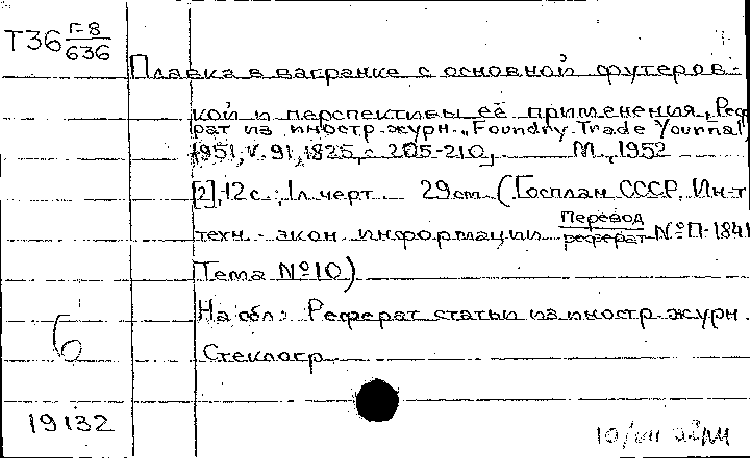 Т36 F-8
636
Плавка в вагранке с основной футеров-
кой и перспективы её применения. Реф
рат из иностр. журн. „Foundry Trade Yournal
1951, V. 91, 1825, с 205-210, М., 1952
[2], 12 с.; 1 л. черт. 29 cm (Госплан СССР. Ин-т
техн. - экон. информации. Перевод
реферат № П-1841
Тема № 10)
На обл: Реферат статьи из иностр. журн.
Стеклогр.
б
19132